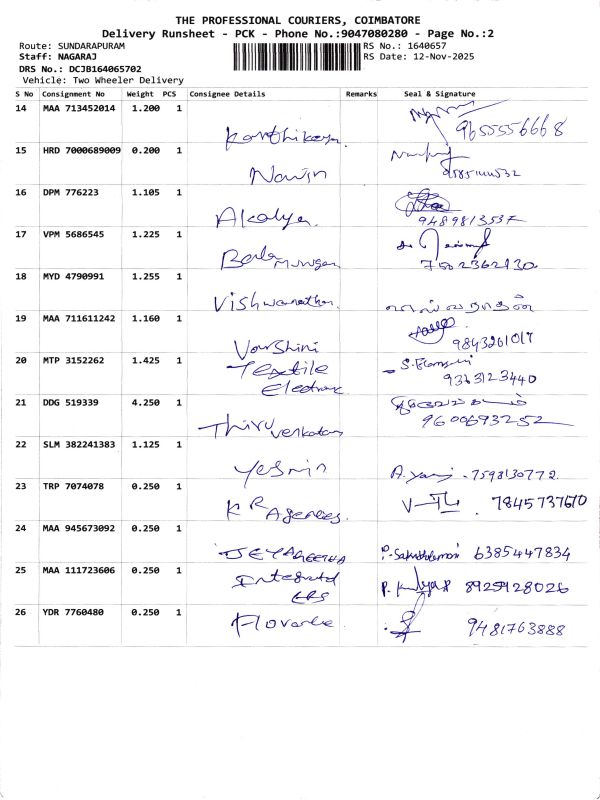 THE PROFESSIONAL COURIERS, COIMBATORE
Delivery Runsheet - PCK - Phone No.:9047080280 - Page No.:2
Route: SUNDARAPURAM RS No.: 1640657
Staff: NAGARAJ RS Date: 12-Nov-2025
DRS No.: DCJB164065702
Vehicle: Two Wheeler Delivery
S No Consignment No Weight PCS Consignee Details Remarks Seal & Signature
14 MAA 713452014 1.200 1
Karthikeya 9655556668
15 HRD 7000689009 0.200 1
Navin
16 DPM 776223 1.105 1
Akalya. 9489813537
17 VPM 5686545 1.225 1
Bala Murugan 7502362130
18 MYD 4790991 1.255 1
Vishwanathan.
19 MAA 711611242 1.160 1
Varshini 9843261017
20 MTP 3152262 1.425 1
Textile
Electronic 9363123440
21 DDG 519339 4.250 1
Thiru Venkatam 9600693252
22 SLM 382241383 1.125 1
Yesmin 7598130772
23 TRP 7074078 0.250 1
K R Agencies. 7845737670
24 MAA 945673092 0.250 1
JEYAGEETHA 6385447834
25 MAA 111723606 0.250 1
Integrated 8925928026
26 YDR 7760480 0.250 1
9481763888